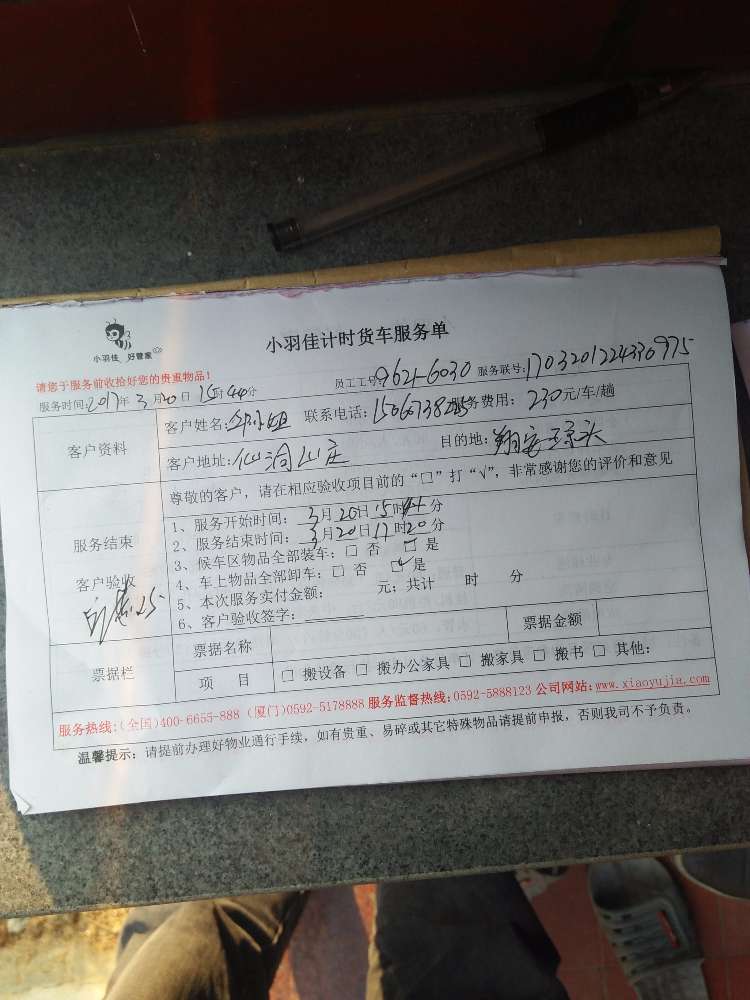 小羽佳 好管家
小羽佳计时货车服务单
请您于服务前收拾好您的贵重物品!
员工工号:9621-6030 服务联号:1703201224330975
服务时间:2017年3月20日15时44分
客户资料
客户姓名: 小姐 联系电话: 服务费用:230元/车/趟
客户地址:仙洞山庄 目的地:翔安
服务结束
客户验收
尊敬的客户,请在相应验收项目前的“□”打“√”,非常感谢您的评价和意见
1、服务开始时间:3月20日15时44分
2、服务结束时间:3月20日17时20分
3、候车区物品全部装车:□ 否 □ 是
4、车上物品全部卸车:□ 否 □ 是
5、本次服务实付金额: 元;共计 时 分
6、客户验收签字:
票据栏
票据名称
票据金额
项 目
□ 搬设备 □ 搬办公家具 □ 搬家具 □ 搬书 □ 其他:
服务热线:(全国)400-6655-888 (厦门)0592-5178888 服务监督热线:0592-5888123 公司网站:www.xiaoyujia.com
温馨提示:请提前办理好物业通行手续,如有贵重、易碎或其它特殊物品请提前申报,否则我司不予负责。